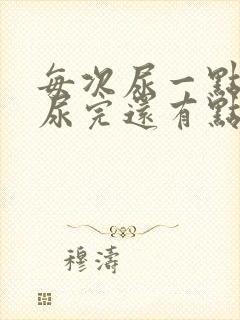 每次尿一點
尿完還有點
穆濤